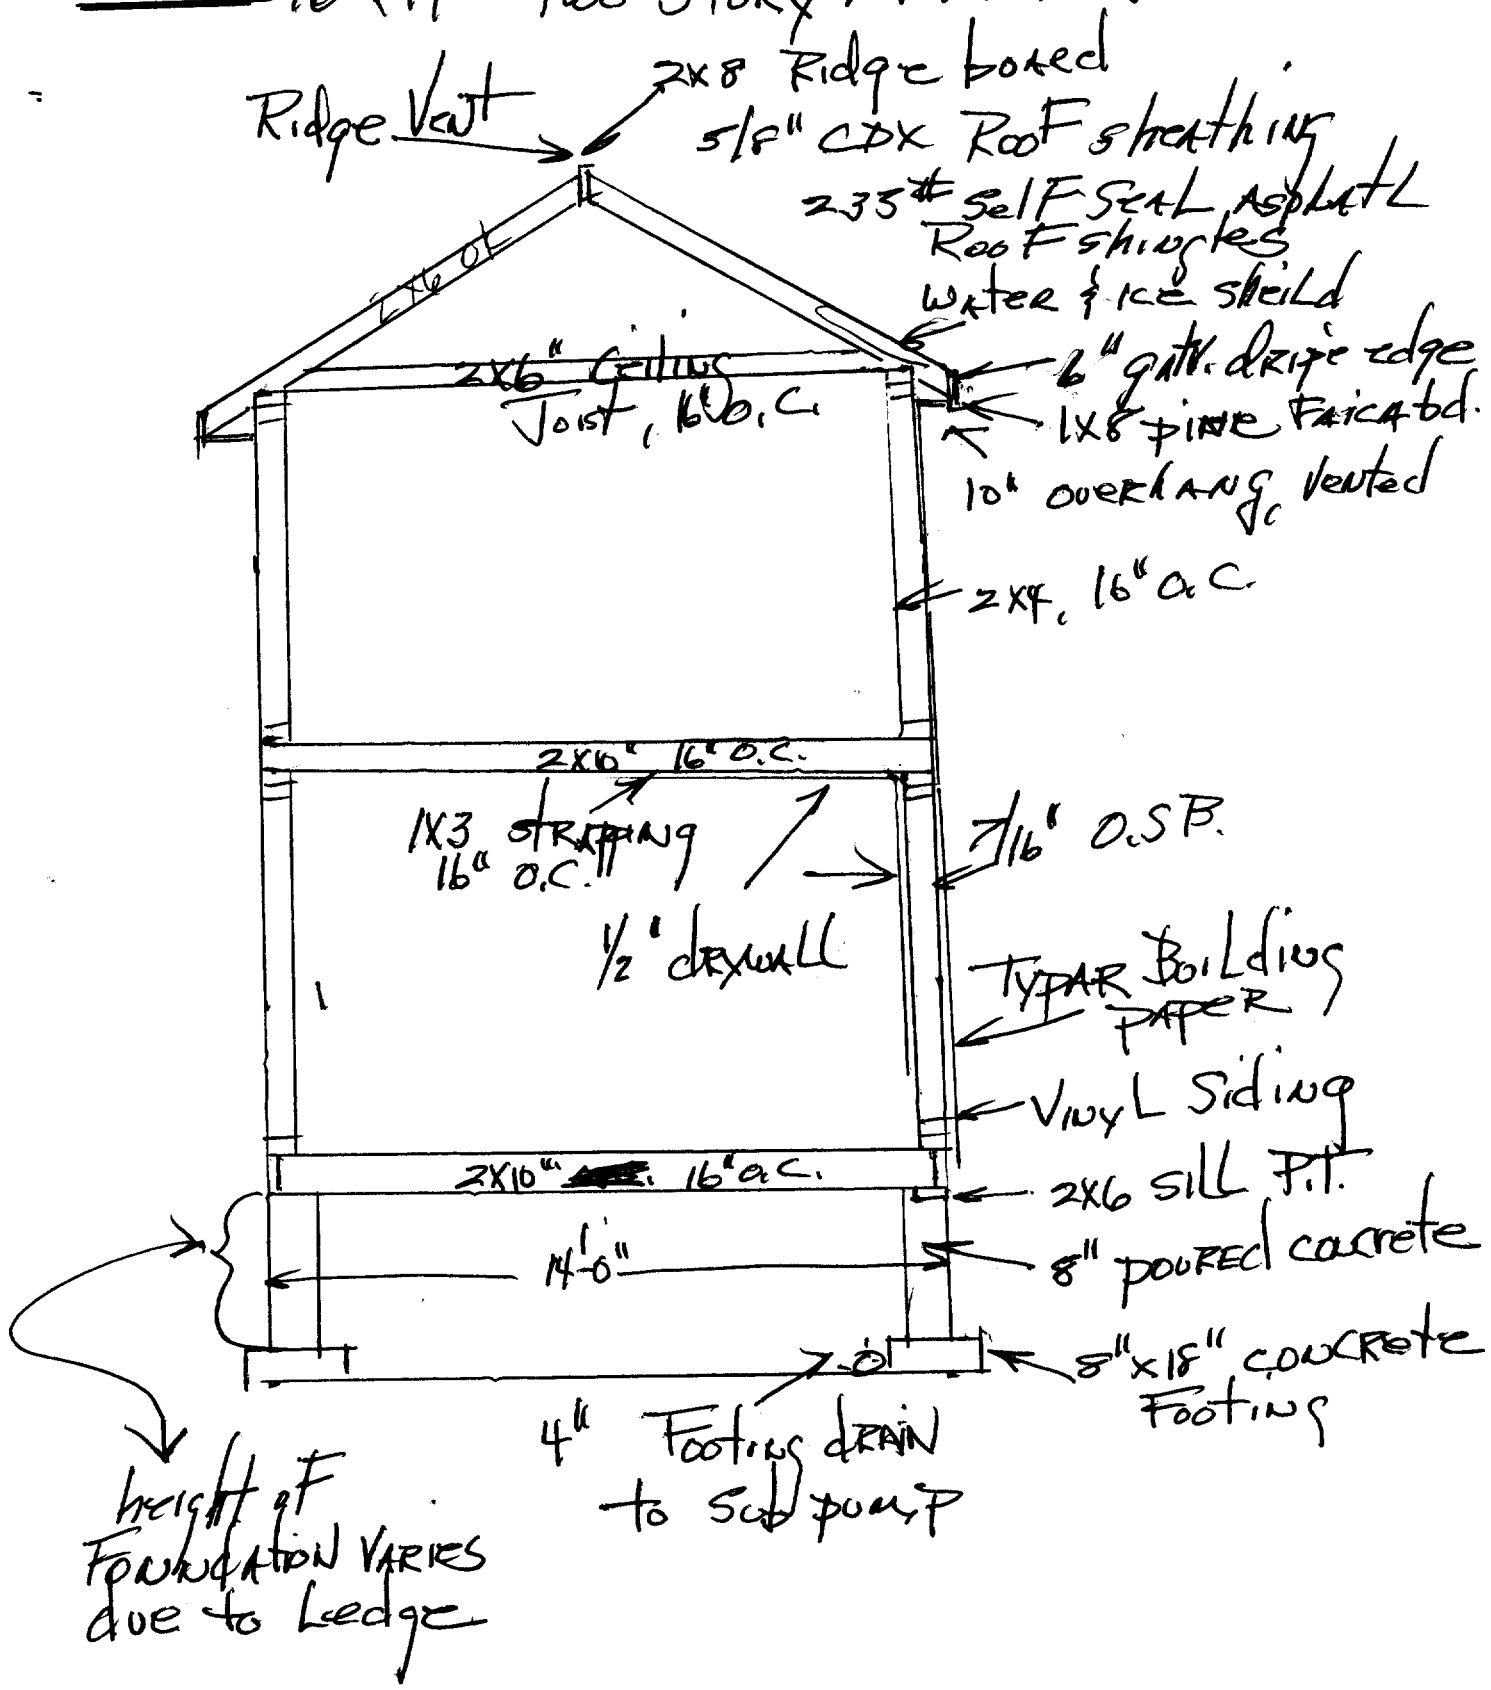 Two Story
Ridge Vent
2x8 Ridge board
5/8" CDX Roof sheathing
235# Self Seal Asphatl
Roof shingles
Water & ice sheild
2x6
6" galv. dripe edge
1x8 pine Faica bd.
10" overhang, vented
2x6" Ceiling
Joist, 16" O.C.
2x4, 16" O.C.
2x10" 16" O.C.
1x3 strapping
16" O.C.
1/2" drywall
7/16" O.S.B.
Typar Building
paper
Vinyl Siding
2x10" 16" O.C.
2x6 Sill P.T.
14'-0"
8" poured concrete
8"x18" concrete
Footing
4" Footing drain
to Sub pump
height of
Foundation Varies
due to Ledge